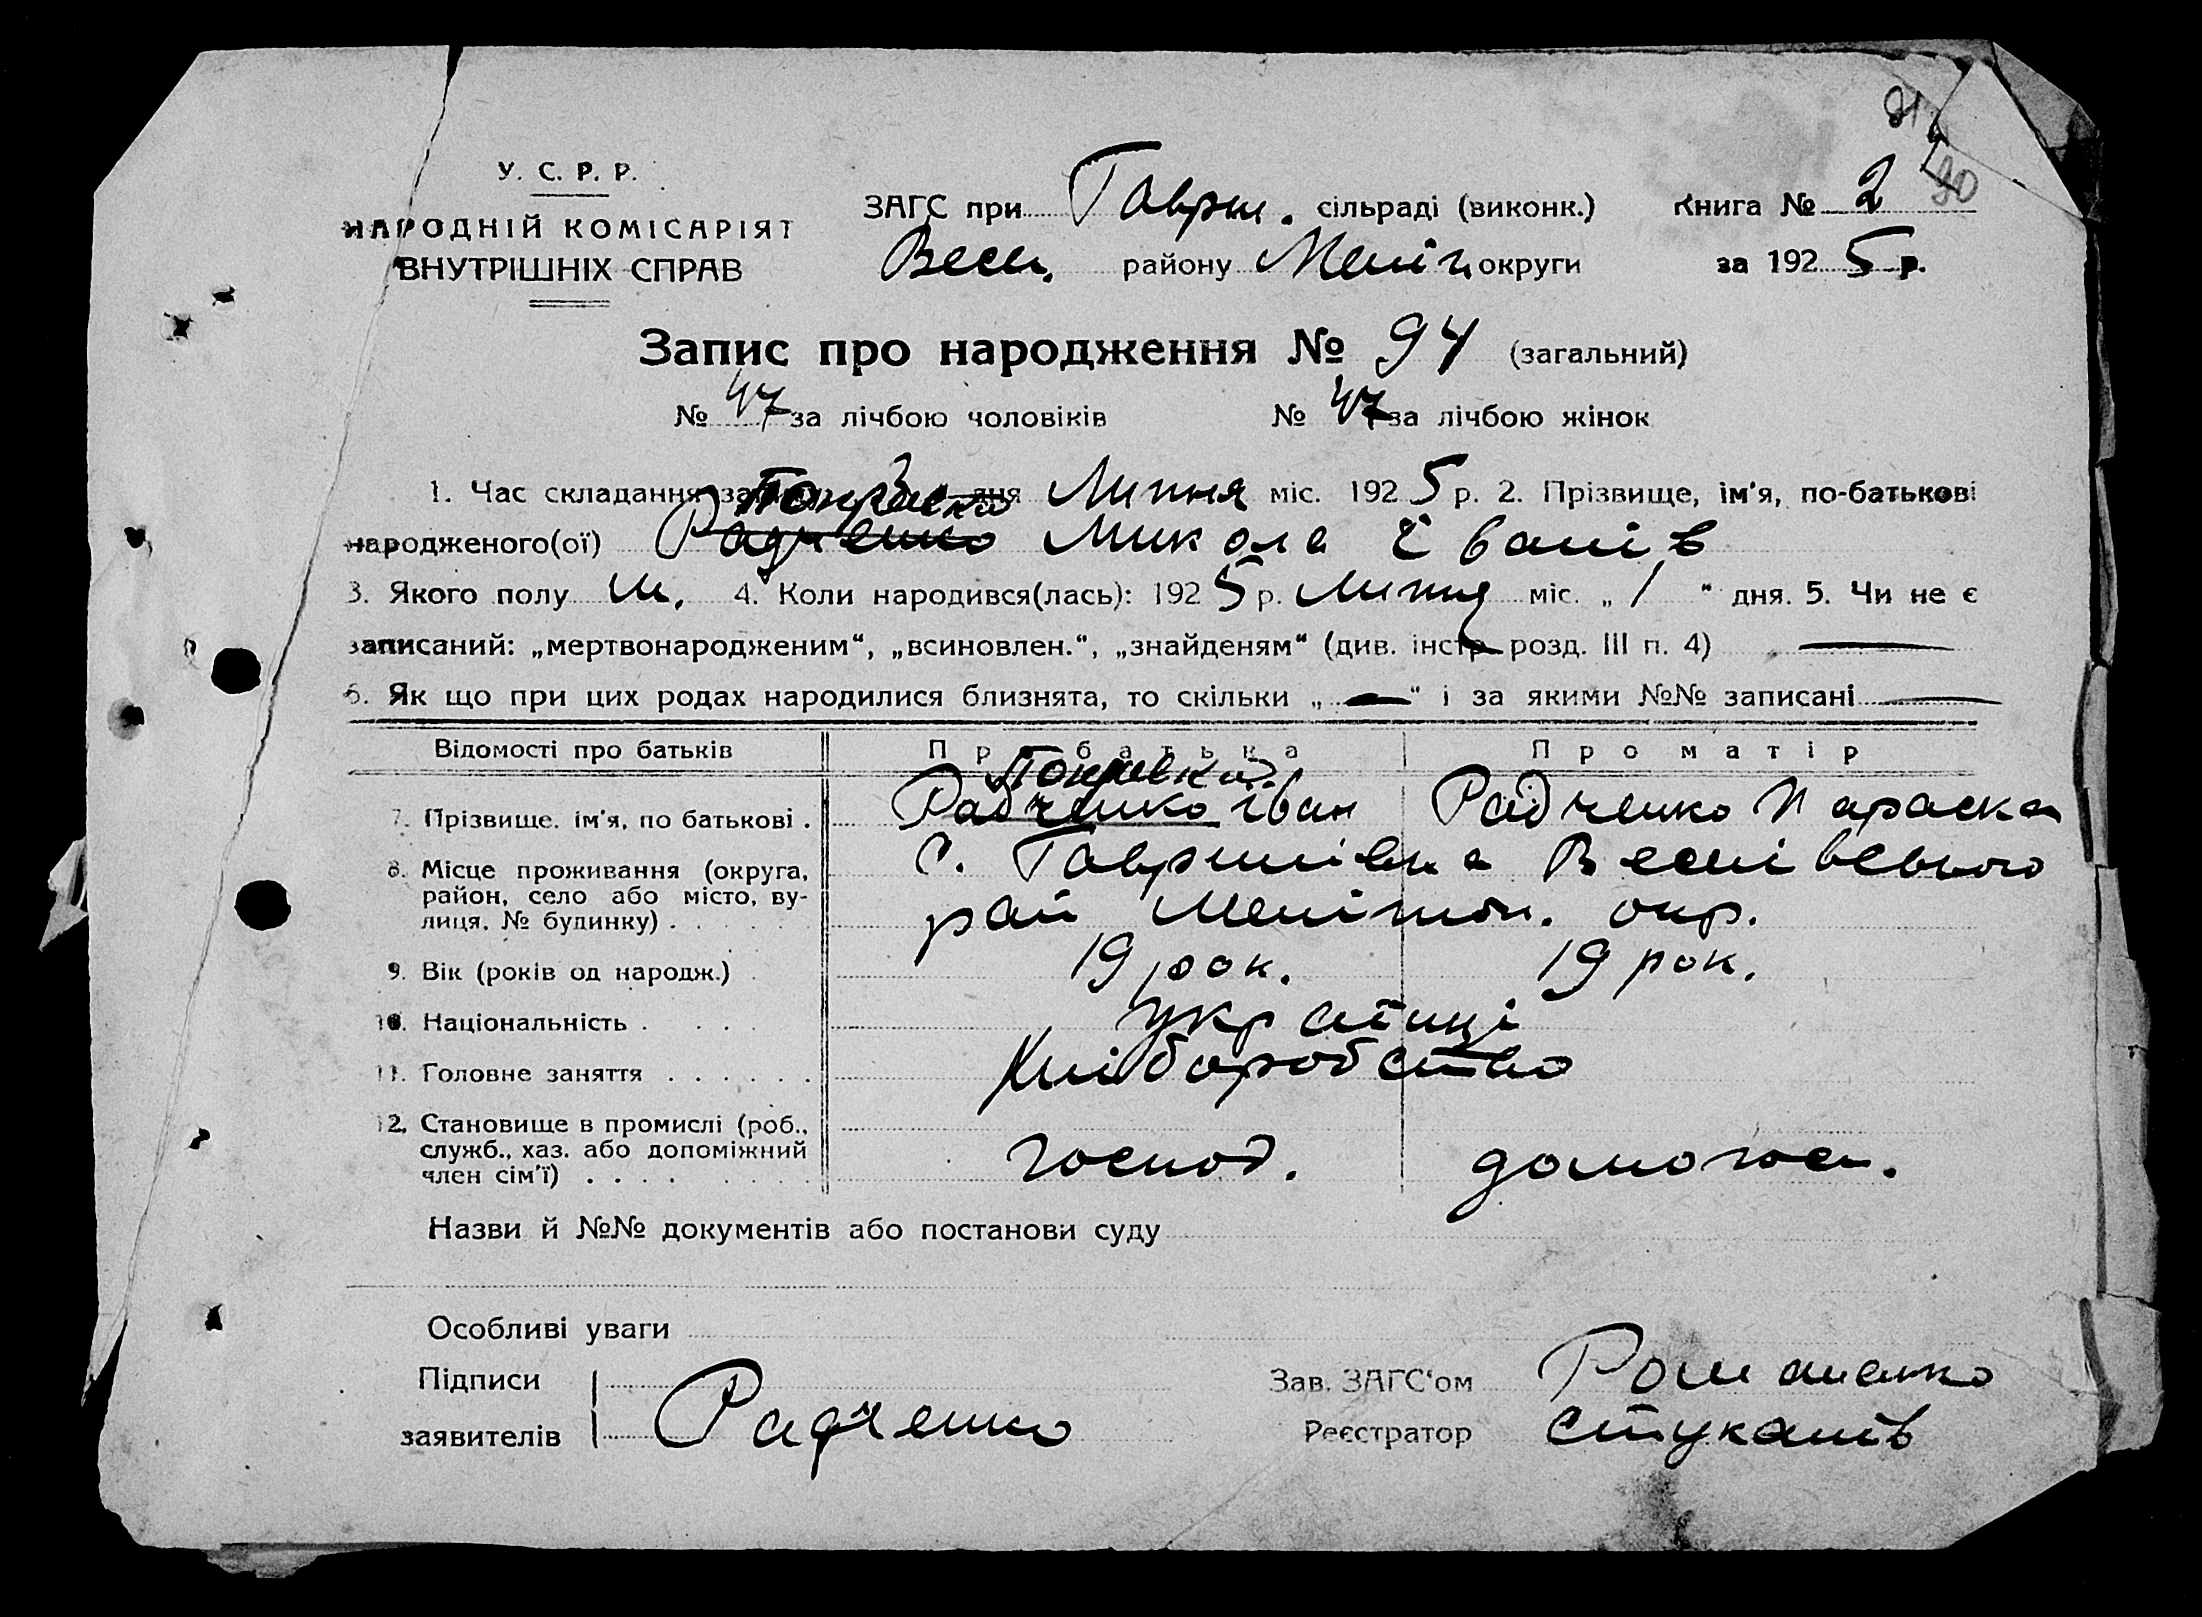 91
90
У. С. Р. Р.
НАРОДНІЙ КОМІСАРІЯТ
ВНУТРІШНІХ СПРАВ
ЗАГС при Гаврш. сільраді (виконк.) Книга № 2
Весел. району Меліт. округи за 1925 р.
Запис про народження № 94 (загальний)
№ 47 за лічбою чоловіків № 47 за лічбою жінок
1. Час складання дня Липня міс. 1925 р. 2. Прізвище, ім'я, по-батькові
народженого(ої) Радченко Микола Іванів
3. Якого полу м. 4. Коли народився(лась): 1925 р. Липня міс. „ 1 " дня. 5. Чи не є
записаний: „мертвонародженим“, „всиновлен.“, „знайденям“ (див. інстр. розд. III п. 4) —
6. Як що при цих родах народилися близнята, то скільки „ — “ і за якими №№ записані —
Відомості про батьків Про батька Про матір
7. Прізвище, ім'я, по батькові . Радченко Іван Радченко Параска
8. Місце проживання (округа, район, село або місто, вулиця, № будинку) . с. Гавришівка Веселівського
рай Меліт. окр.
9. Вік (років од народж.) 19 рок. 19 рок.
10. Національність . українці
11. Головне заняття . . . . . . Хліборобство
12. Становище в промислі (роб.,
служб., хаз. або допоміжний
член сім'ї) . . . . господ. домогос.
Назви й №№ документів або постанови суду
Особливі уваги
Підписи Зав. ЗАГС'ом Романенко
заявителів Радченко Реєстратор